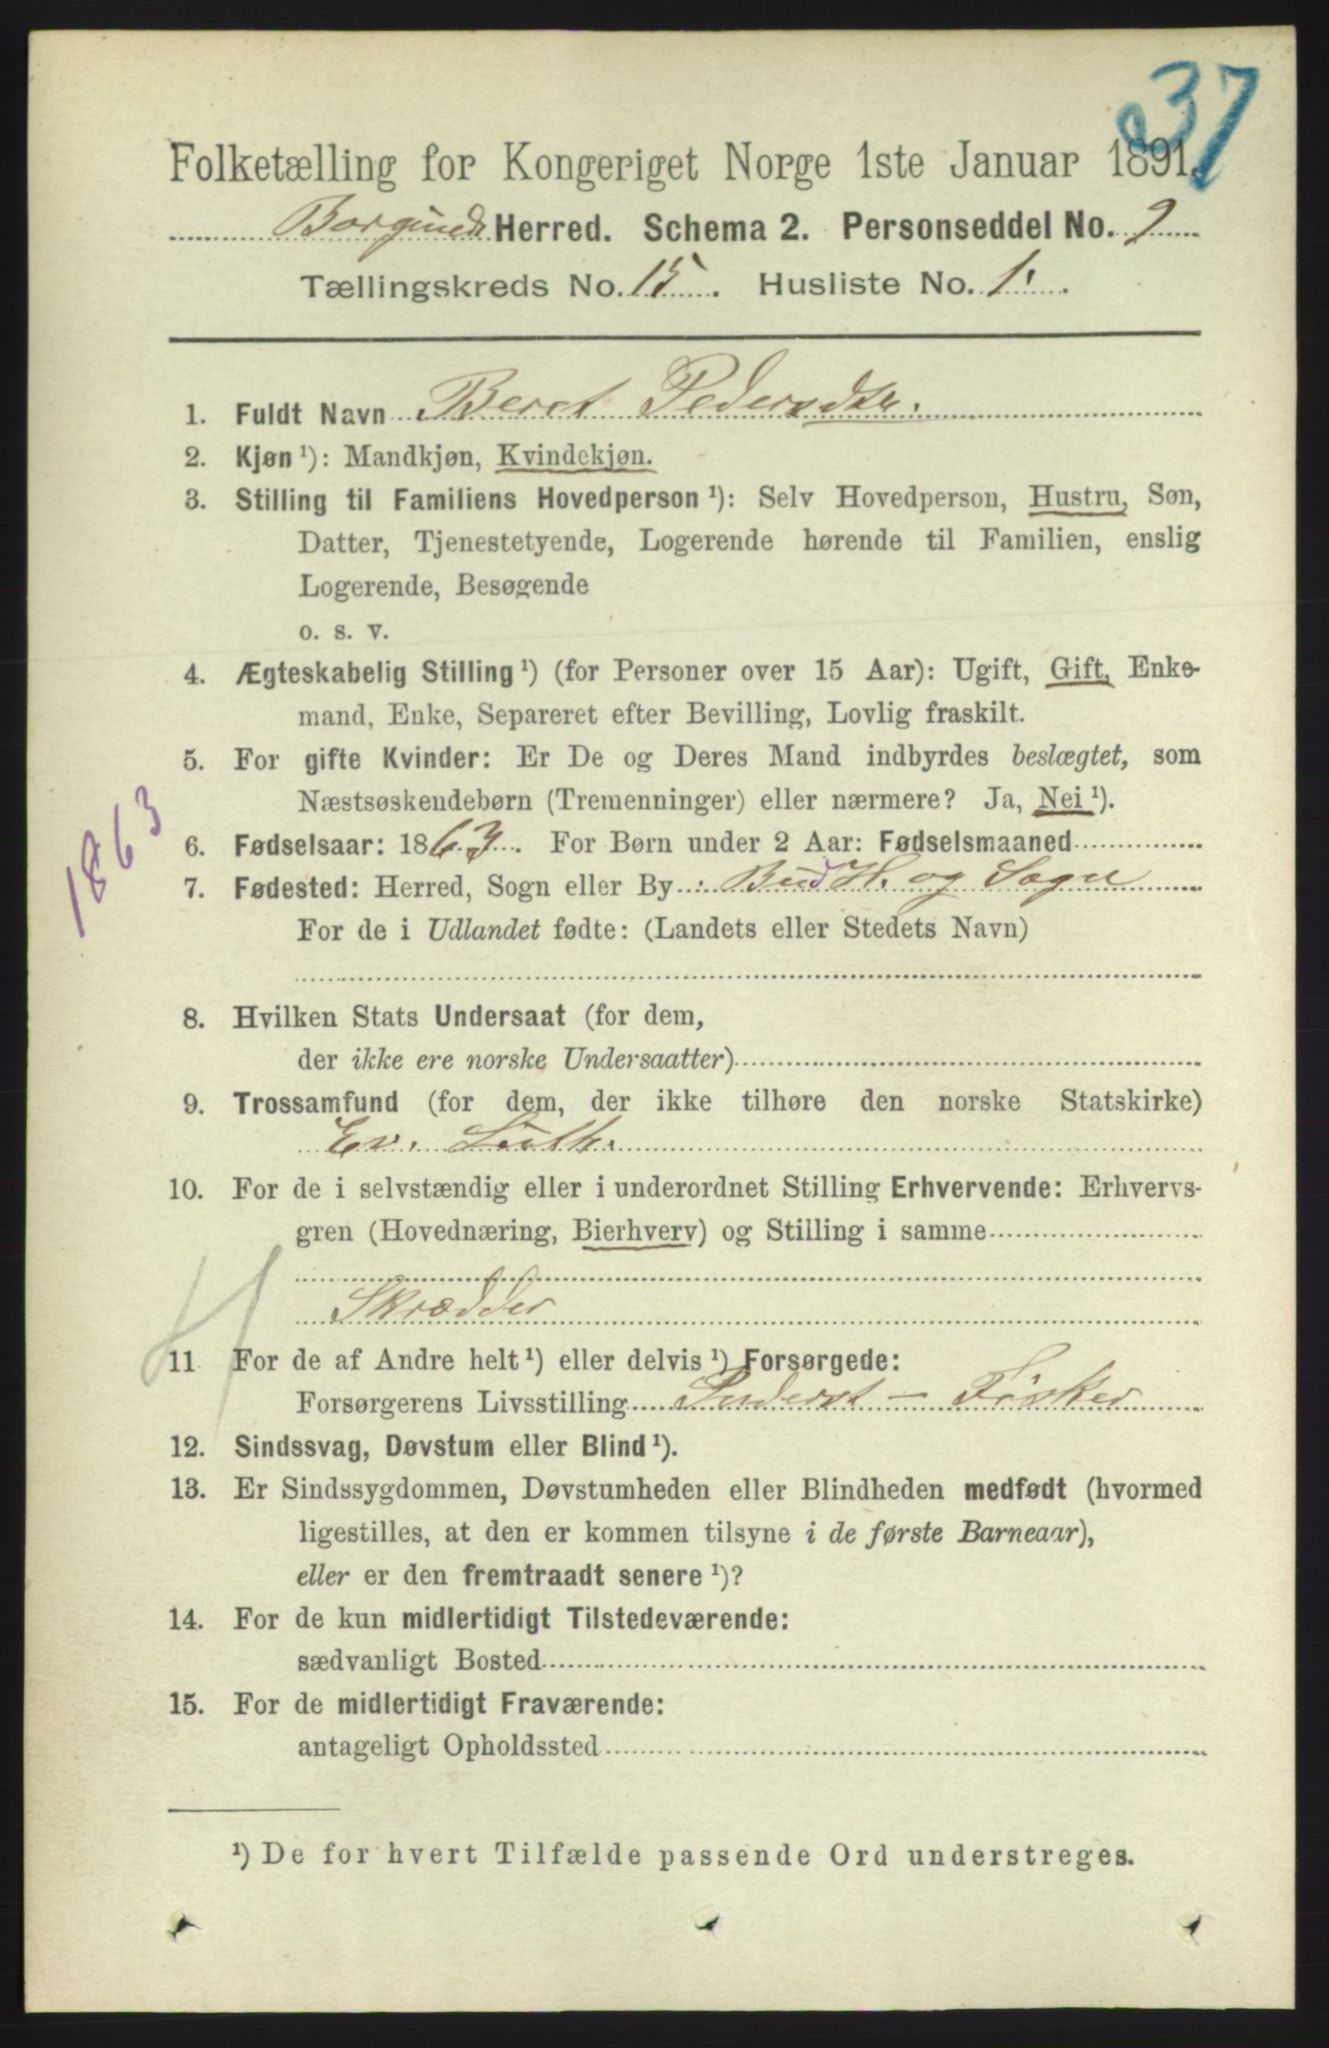 37
Folketælling for Kongeriget Norge 1ste Januar 1891.
Borgund Herred. Schema 2. Personseddel No. 2
Tællingskreds No. 15. Husliste No. 1.
1. Fuldt Navn Beret Pedersdtr.
2. Kjøn ¹): Mandkjøn, Kvindekjøn.
3. Stilling til Familiens Hovedperson ¹): Selv Hovedperson, Hustru, Søn,
Datter, Tjenestetyende, Logerende hørende til Familien, enslig
Logerende, Besøgende
o. s. v.
4. Ægteskabelig Stilling ¹) (for Personer over 15 Aar): Ugift, Gift, Enke-
mand, Enke, Separeret efter Bevilling, Lovlig fraskilt.
5. For gifte Kvinder: Er De og Deres Mand indbyrdes beslægtet, som
Næstsøskendebørn (Tremenninger) eller nærmere? Ja, Nei ¹).
1863
6. Fødselsaar: 1863. For Børn under 2 Aar: Fødselsmaaned
7. Fødested: Herred, Sogn eller By Bud H. og Sogn
For de i Udlandet fødte: (Landets eller Stedets Navn)
8. Hvilken Stats Undersaat (for dem,
der ikke ere norske Undersaatter)
9. Trossamfund (for dem, der ikke tilhøre den norske Statskirke)
Ev. Luth.
10. For de i selvstændig eller i underordnet Stilling Erhvervende: Erhvervs-
gren (Hovednæring, Bierhverv) og Stilling i samme
Skrædder
11 For de af Andre helt ¹) eller delvis ¹) Forsørgede:
Forsørgerens Livsstilling Inderst - Fisker
12. Sindssvag, Døvstum eller Blind ¹).
13. Er Sindssygdommen, Døvstumheden eller Blindheden medfødt (hvormed
ligestilles, at den er kommen tilsyne i de første Barneaar),
eller er den fremtraadt senere ¹)?
14. For de kun midlertidigt Tilstedeværende:
sædvanligt Bosted
15. For de midlertidigt Fraværende:
antageligt Opholdssted
¹) De for hvert Tilfælde passende Ord understreges.